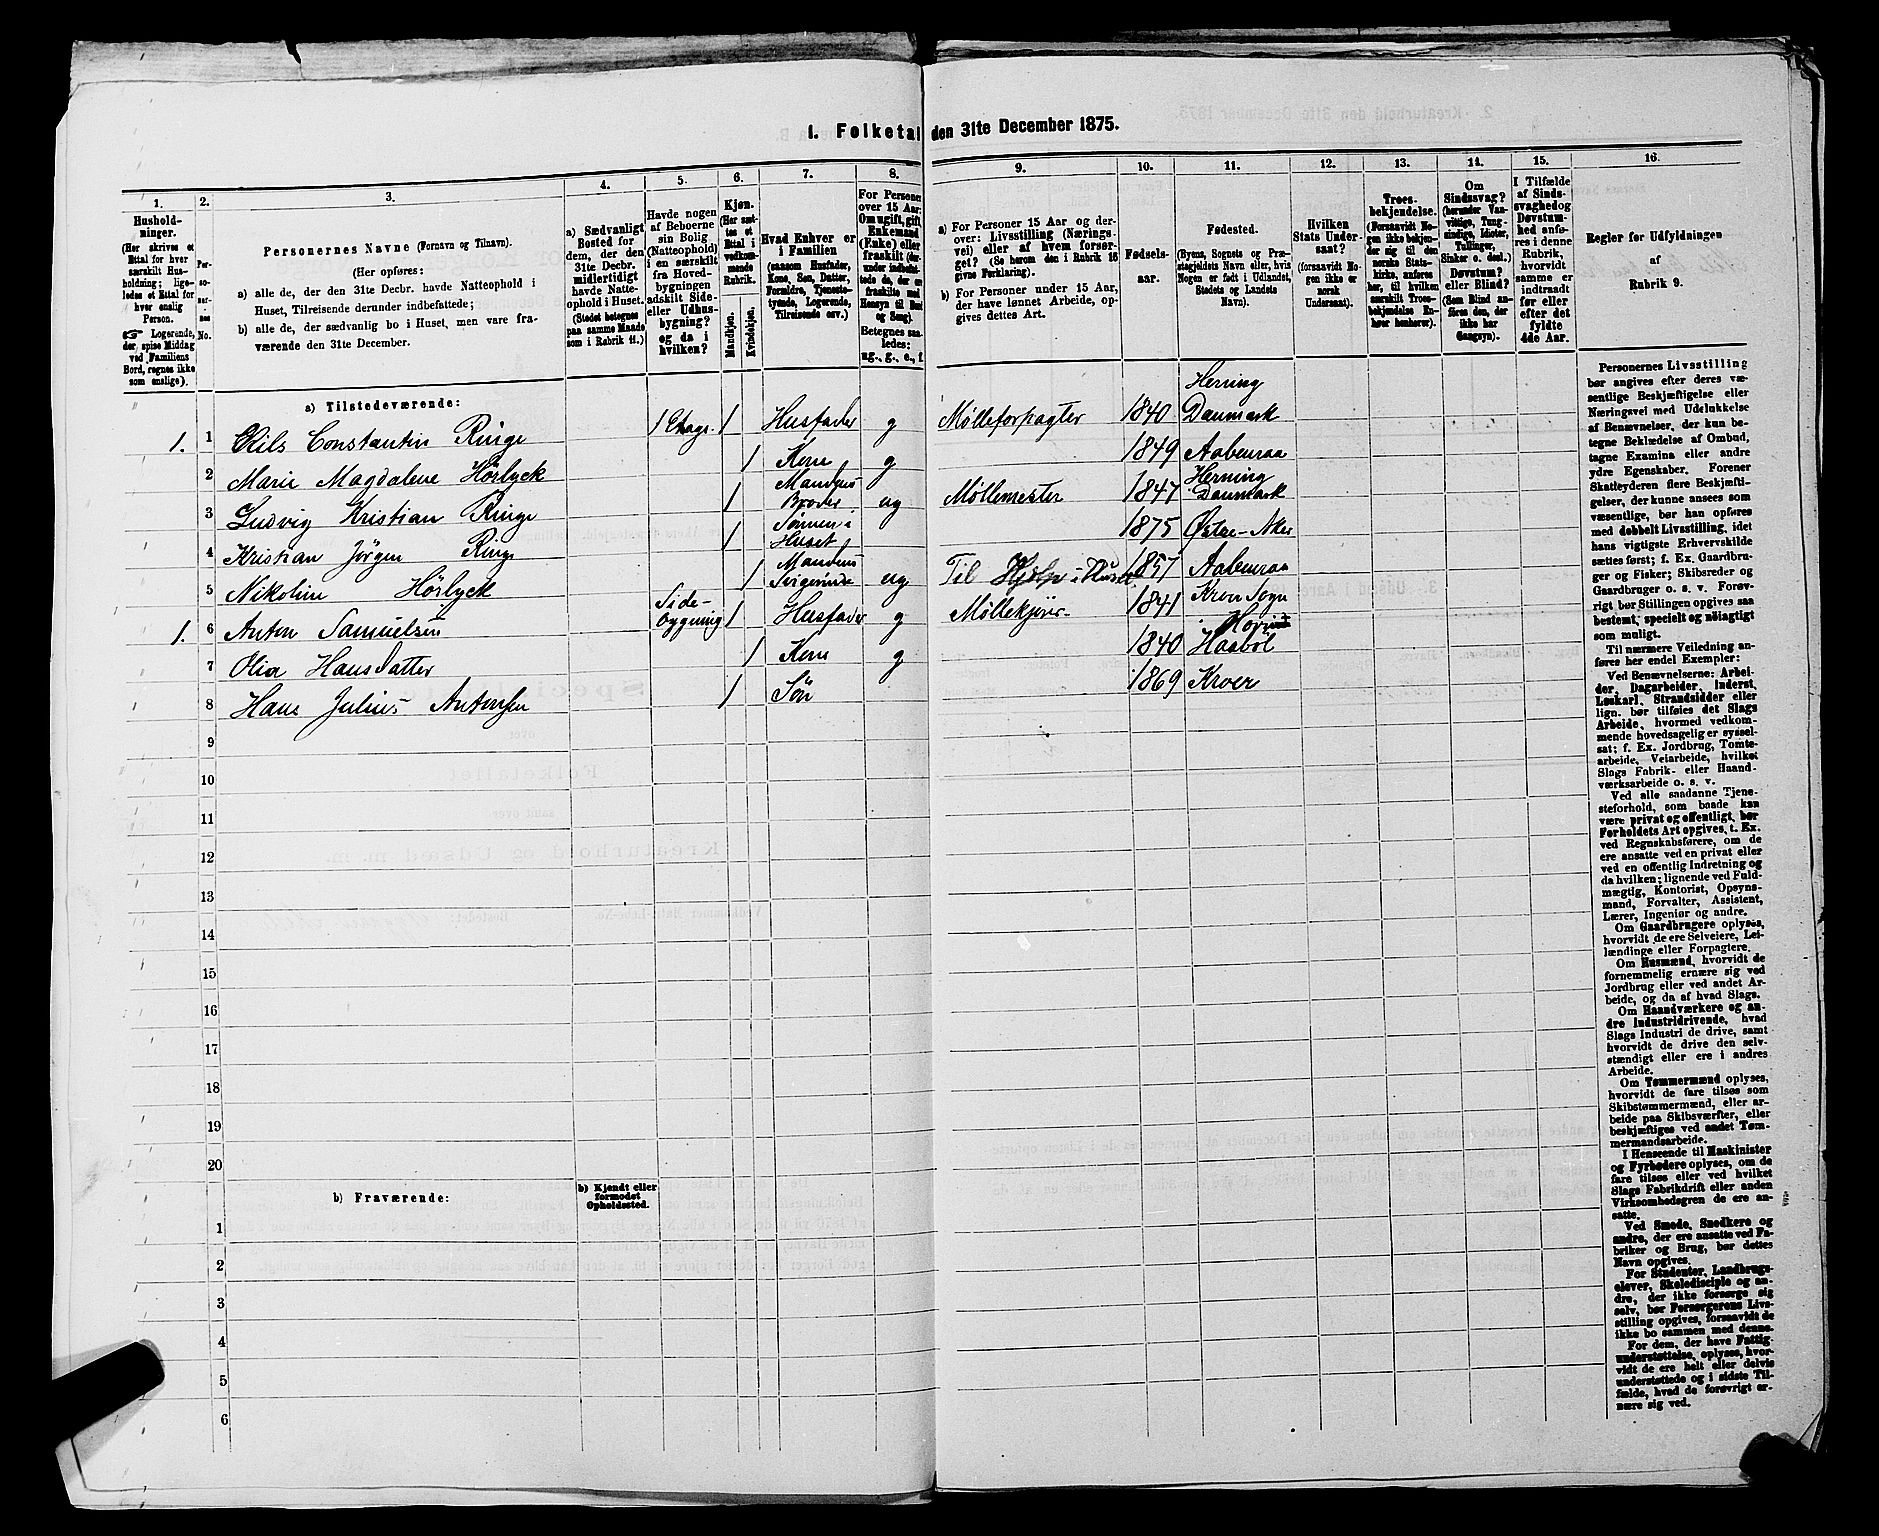 1. Folketal den 31te December 1875.
1.
Hushold-
ninger.
(Her skrives et
Ettal for hver
særskilt Hus-
holdning; lige-
ledes et Ettal for
hver enslig
Person.
Logerende,
der spise Middag
ved Familiens
Bord, regnes ikke
som enslige).
2.
Per-
so-
ner-
nes
No.
3.
Personernes Navne (Fornavn og Tilnavn).
(Her opføres:
a) alle de, der den 31te Decbr. havde Natteophold i
Huset, Tilreisende derunder indbefattede;
b) alle de, der sædvanlig bo i Huset, men vare fra-
værende den 31te December.
4.
a) Sædvanligt
Bosted for
dem, der den
31te Decbr.
midlertidigt
havde Natte-
ophold i Huset.
(Stedet betegnes
paa samme Maade
som i Rubrik 11.)
5.
Havde nogen
af Beboerne
sin Bolig
(Natteophold)
i en særskilt
fra Hoved-
bygningen
adskilt Side-
eller Udhus-
bygning?
og da i
hvilken?
6.
Kjøn.
(Her sæt-
tes et
Ettal i
vedkom-
mende
Rubrik.
Mandkjøn.
Kvindekjøn.
7.
Hvad Enhver er
i Familien
(saasom Husfader,
Kone, Søn, Datter,
Forældre, Tjeneste-
tyende, Logerende,
Tilreisende osv.)
8.
For Personer
over 15 Aar:
Om ugift, gift,
Enkemand
(Enke) eller
fraskilt
Betegnes saa-
ledes:
ug., g., e., f.
9.
a) For Personer 15 Aar og der-
over: Livsstilling (Nærings-
vei) eller af hvem forsør-
get? (Se herom den i Rubrik 16
givne Forklaring).
b) For Personer under 15 Aar,
der have lønnet Arbeide, op-
gives dettes Art.
10.
Fødsels-
aar.
11.
Fødested.
(Byens, Sognets og Præ-
stegjeldets Navn eller, hvis
Nogen er født i Udlandet,
Stedets og Landets
Navn).
12.
Hvilken
Stats Under-
saat?
(forsaavidt No-
gen ikke er
norsk
Undersaat).
13.
Troes-
bekjendelse.
(Forsaavidt No-
gen ikke bekjen-
der sig til den
norske Stats-
kirke, anføres
her, til hvilken
særskilt Troes-
bekjendelse En-
hver henhører).
14.
Om
Sindssvag?
(herunder Van-
vittige, Tung-
sindige, Idioter,
Tullinger,
Sinker o. desl.)
Døvstum?
eller Blind?
(Som Blind an-
føres den, der
ikke har
Gangsyn).
15.
I Tilfælde
af Sinds-
svaghed og
Døvstum-
hed anfø-
res i denne
Rubrik,
hvorvidt
samme er
indtraadt
før eller
efter det
fyldte
4de Aar.
16.
Regler for Udfyldningen
af
Rubrik 9.
a) Tilstedeværende:
1. 1 Nils Constantin Ringe 1 Etage. 1 Husfader g Mølleforpagter 1840 Herning Danmark
2 Marie Magdalene Hörlyck 1 Kone g 1849 Aabenraa
3 Ludvig Kristian Ringe 1 Mandens Broder ug Møllemester 1847 Herning Danmark
4 Kristian Jörgen Ringe 1 Sønnen i Huset 1875 Østre-Aker
5 Nikoline Hörlyck 1 Mandens Svigerinde ug Til Hjelp i Huset 1857 Aabenraa
1. 6 Anton Samuelsen Side-bygning 1 Husfader g Møllekjører 1841 Kroer Sogn
7 Olia Hansdatter 1 Kone g 1840 Haabøl
8 Hans Julius Antonsen 1 Søn 1869 Kroer
9
10
11
12
13
14
15
16
17
18
19
20
b) Fraværende:
b) Kjendt eller
formodet
Opholdssted.
1
2
3
4
5
6
Personernes Livsstilling
bør angives efter deres væ-
sentlige Beskjæftigelse eller
Næringsvei med Udelukkelse
af Benævnelser, der kun be-
tegne Beklædelse af Ombud,
tagne Examina eller andre
ydre Egenskaber. Forener
Skatteyderen flere Beskjæfti-
gelser, der kunne ansees som
væsentlige, bør han opføres
med dobbelt Livsstilling, idet
hans vigtigste Erhvervskilde
sættes først; f. Ex. Gaardbru-
ger og Fisker; Skibsreder og
Gaardbruger o. s. v. Forøv-
rigt bør Stillingen opgives saa
bestemt, specielt og nøiagtigt
som muligt.
Til nærmere Veiledning an-
føres her endel Exempler:
Ved Benævnelserne: Arbei-
der, Dagarbeider, Inderst,
Løskarl, Strandsidder eller
lign. bør tilføies det Slags
Arbeide, hvormed vedkom-
mende hovedsagelig er syssel-
sat; f. Ex. Jordbrug, Tomte-
arbeide, Veiarbeide, hvilket
Slags Fabrik- eller Haand-
værksarbeide o. s. v.
Ved alle saadanne Tjene-
steforhold, som baade kan
være privat og offentligt, bør
Forholdets Art opgives, t. Ex.
ved Regnskabsførere, om de
ere ansatte ved en privat eller
ved en offentlig Indretning og
da hvilken; lignende ved Fuld-
mægtig, Kontorist, Opsyns-
mand, Forvalter, Assistent,
Lærer, Ingeniør og andre.
Om Gaardbrugere oplyses,
hvorvidt de ere Selveiere, Lei-
lændinge eller Forpagtere.
Om Husmænd, hvorvidt de
fornemmelig ernære sig ved
Jordbrug eller ved andet Ar-
beide, og da af hvad Slags.
Om Haandværkere og an-
dre Industridrivende, hvad
Slags Industri de drive, samt
hvorvidt de drive den selv-
stændigt eller ere i andres
Arbeide.
Om Tømmermænd oplyses,
hvorvidt de fare tilsøs som
Skibstømmermænd, eller ar-
beide paa Skibsværfter, eller
beskjæftiges ved andet Tøm-
mermandsarbeide.
I Henseende til Maskinister
og Fyrbødere oplyses, om de
fare tilsøs eller ved hvilket
Slags Fabrikdrift eller anden
Virksomhedsgren de ere an-
satte.
Ved Smede, Snedkere og
andre, der ere ansatte ved Fa-
briker og Brug, bør dettes
Navn opgives.
For Studenter, Landbrugs-
elever, Skoledisciple og an-
dre, der ikke forsørge sig
selv, bør Forsørgerens Livs-
stilling opgives, forsaavidt de
ikke bo sammen med denne.
For dem, der have Fattig-
understøttelse, oplyses, hvor-
vidt de ere helt eller delvis
understøttede og i sidste Til-
fælde, hvad de forøvrigt er-
nære sig ved.